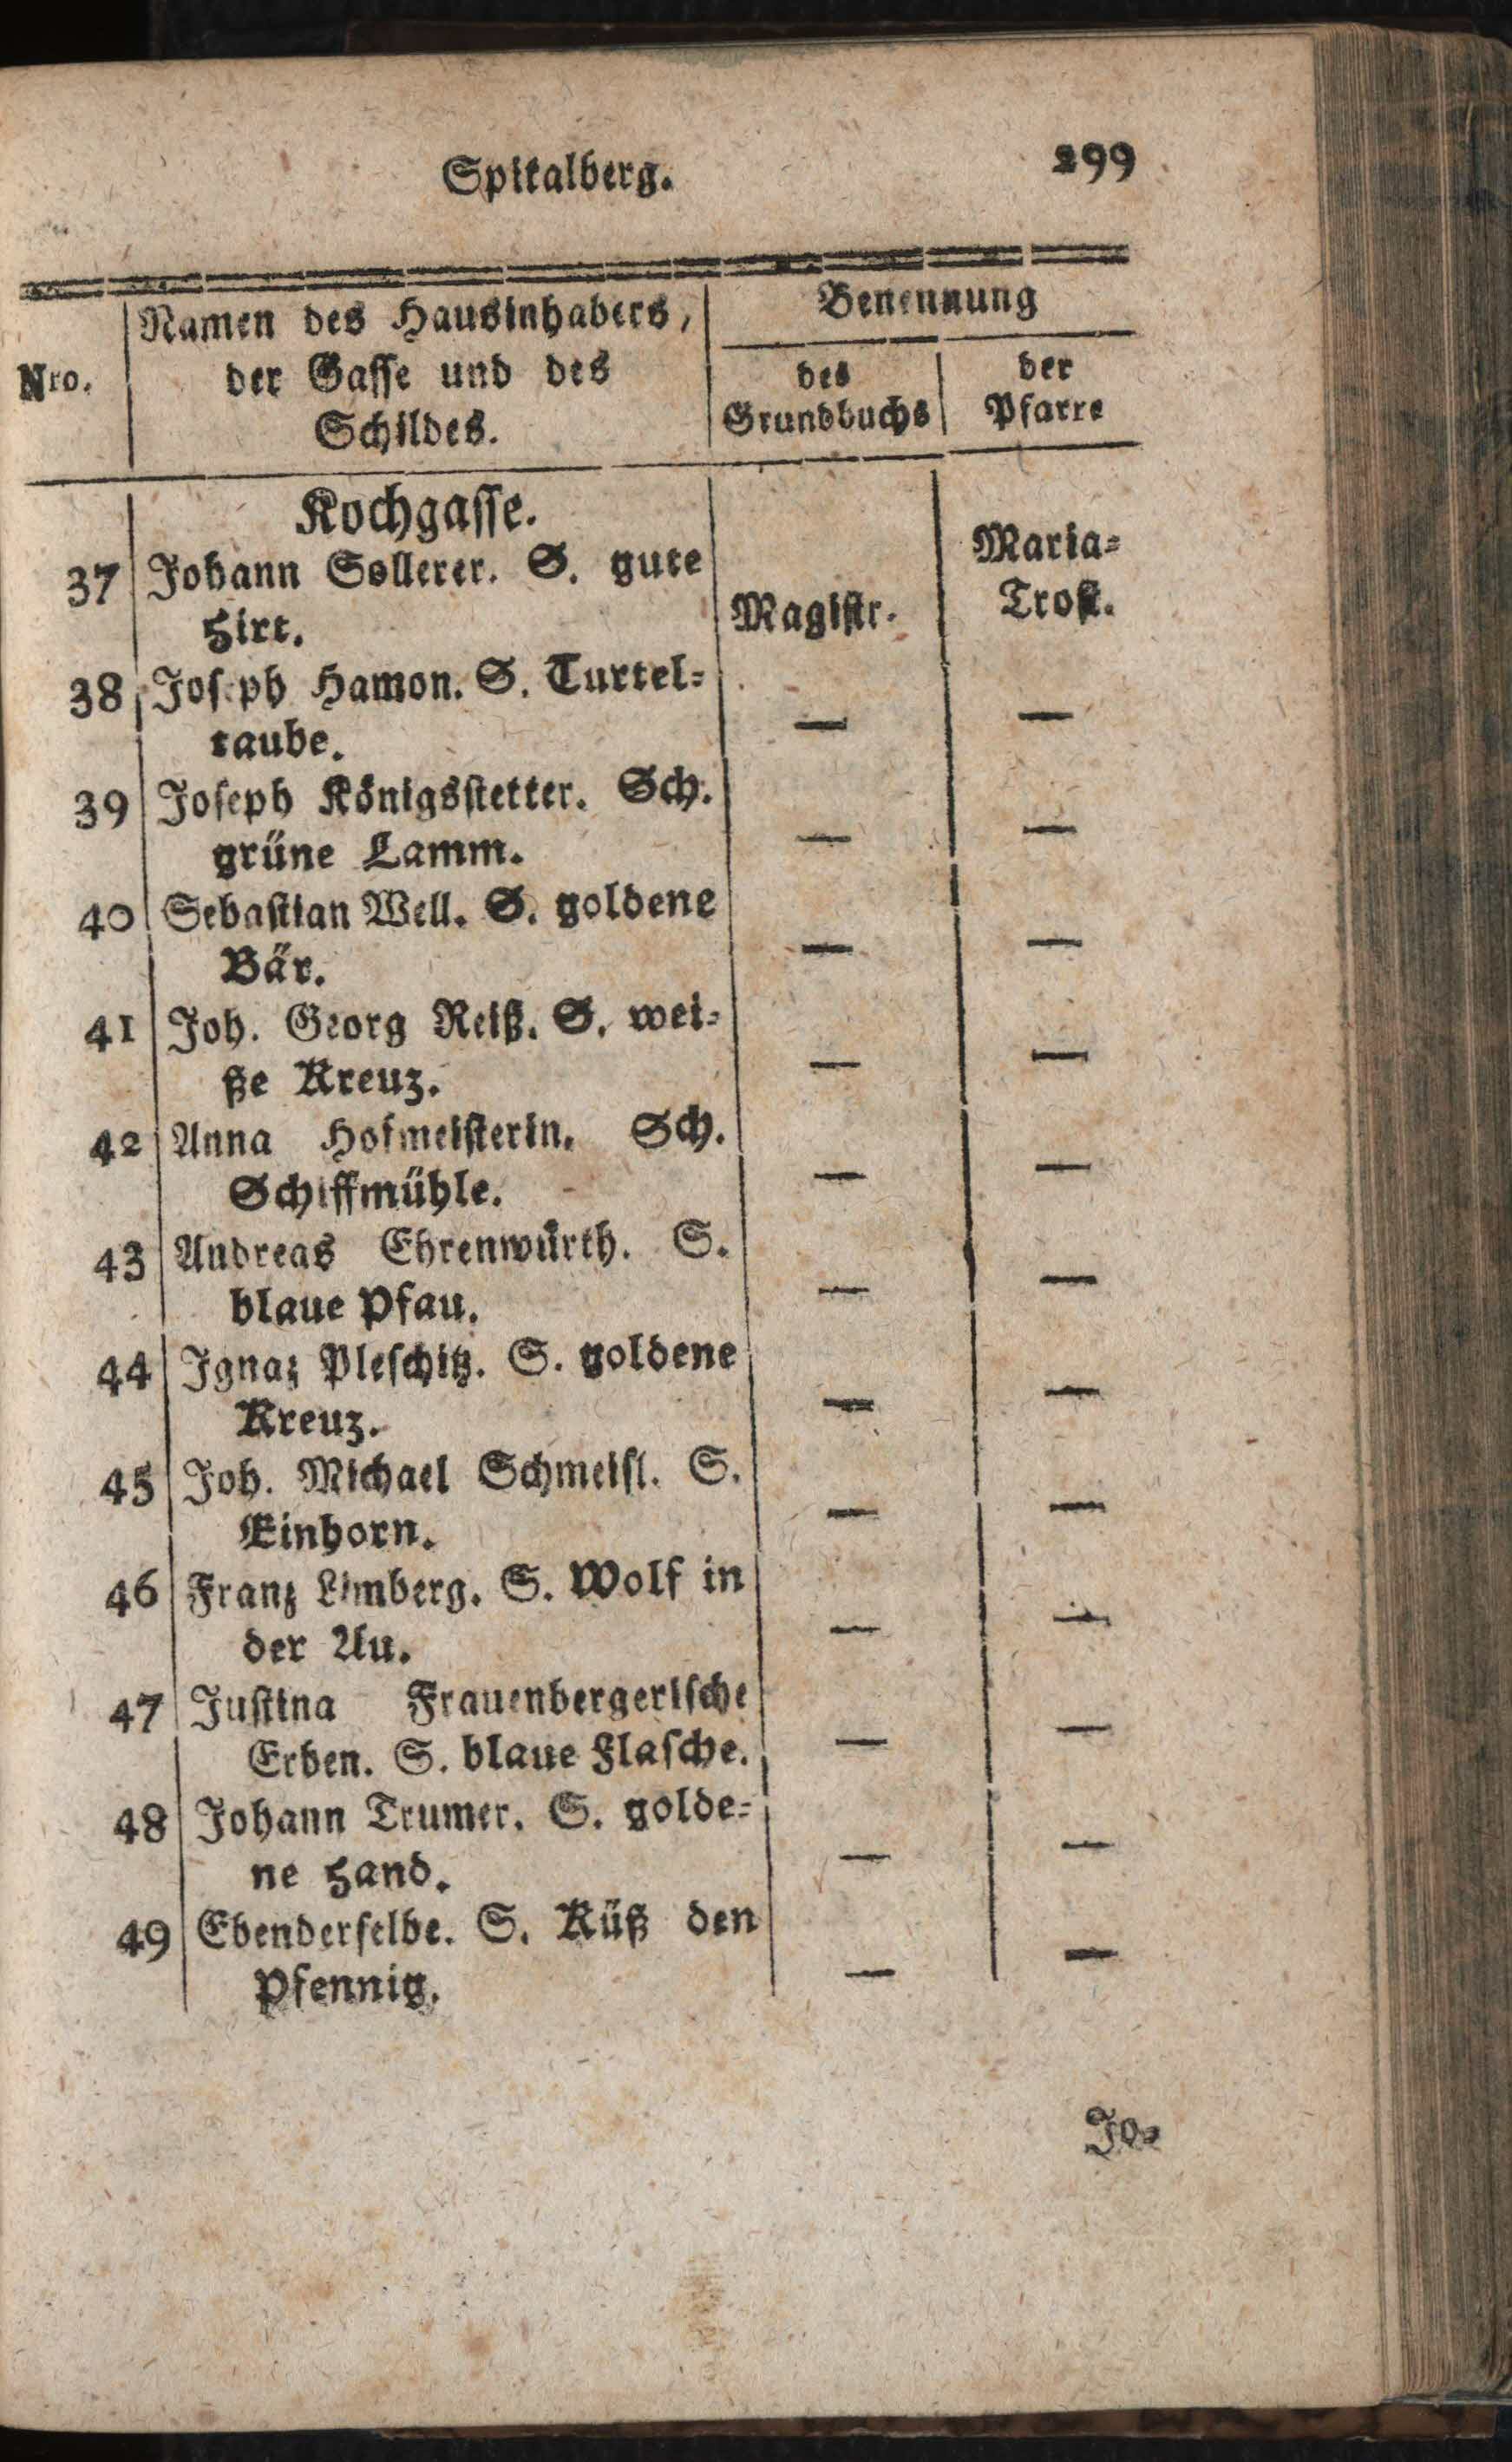 Spitalberg. 299
Nro. Namen des Hausinhabers, der Gasse und des Schildes. Benennung
des Grundbuchs der Pfarre
Kochgasse.
37 Johann Sollerer. S. gute
Hirt. Magistr. Maria=
Trost.
38 Joseph Hamon. S. Turtel=
taube. — —
39 Joseph Königsstetter. Sch.
grüne Lamm. — —
40 Sebastian Well. S. goldene
Bär. — —
41 Joh. Georg Reiß. S. wei=
ße Kreuz. — —
42 Anna Hofmeisterin. Sch.
Schiffmühle. — —
43 Andreas Ehrenwürth. S.
blaue Pfau. — —
44 Ignaz Pleschitz. S. goldene
Kreuz. — —
45 Joh. Michael Schmeisl. S.
Einhorn. — —
46 Franz Limberg. S. Wolf in
der Au. — —
47 Justina Frauenbergerische
Erben. S. blaue Flasche. — —
48 Johann Trumer. S. golde=
ne Hand. — —
49 Ebenderselbe. S. Küß den
Pfennig. — —
Jo=